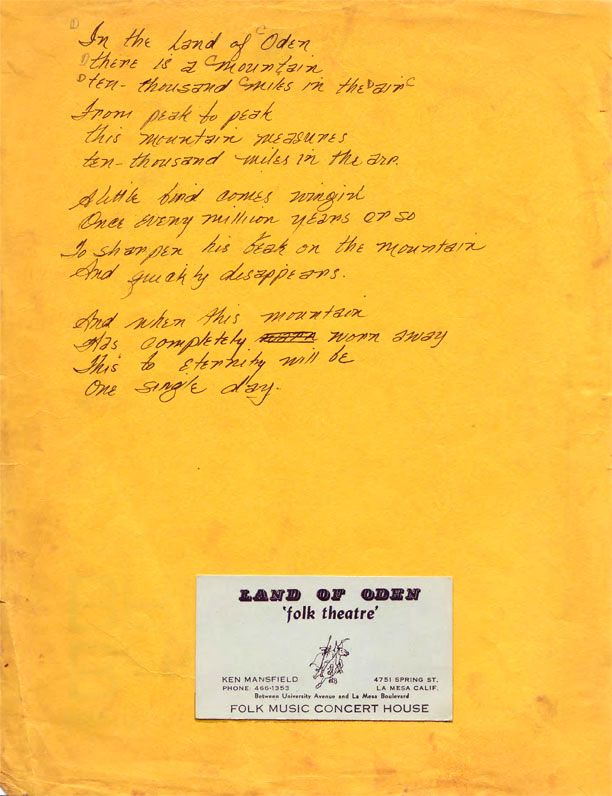 D C
In the Land of Oden
D there is a C mountain
D ten-thousand C miles in the D air C
From peak to peak
this mountain measures
ten-thousand miles in the air.
A little bird comes wingin'
Once every million years or so
To sharpen his beak on the mountain
And quickly disappears.
And when this mountain
Has completely worn away
This to eternity will be
One single day.
LAND OF ODEN
'folk theatre'
KEN MANSFIELD 4751 SPRING ST.
PHONE: 466-1353 LA MESA CALIF.
Between University Avenue and La Mesa Boulevard
FOLK MUSIC CONCERT HOUSE